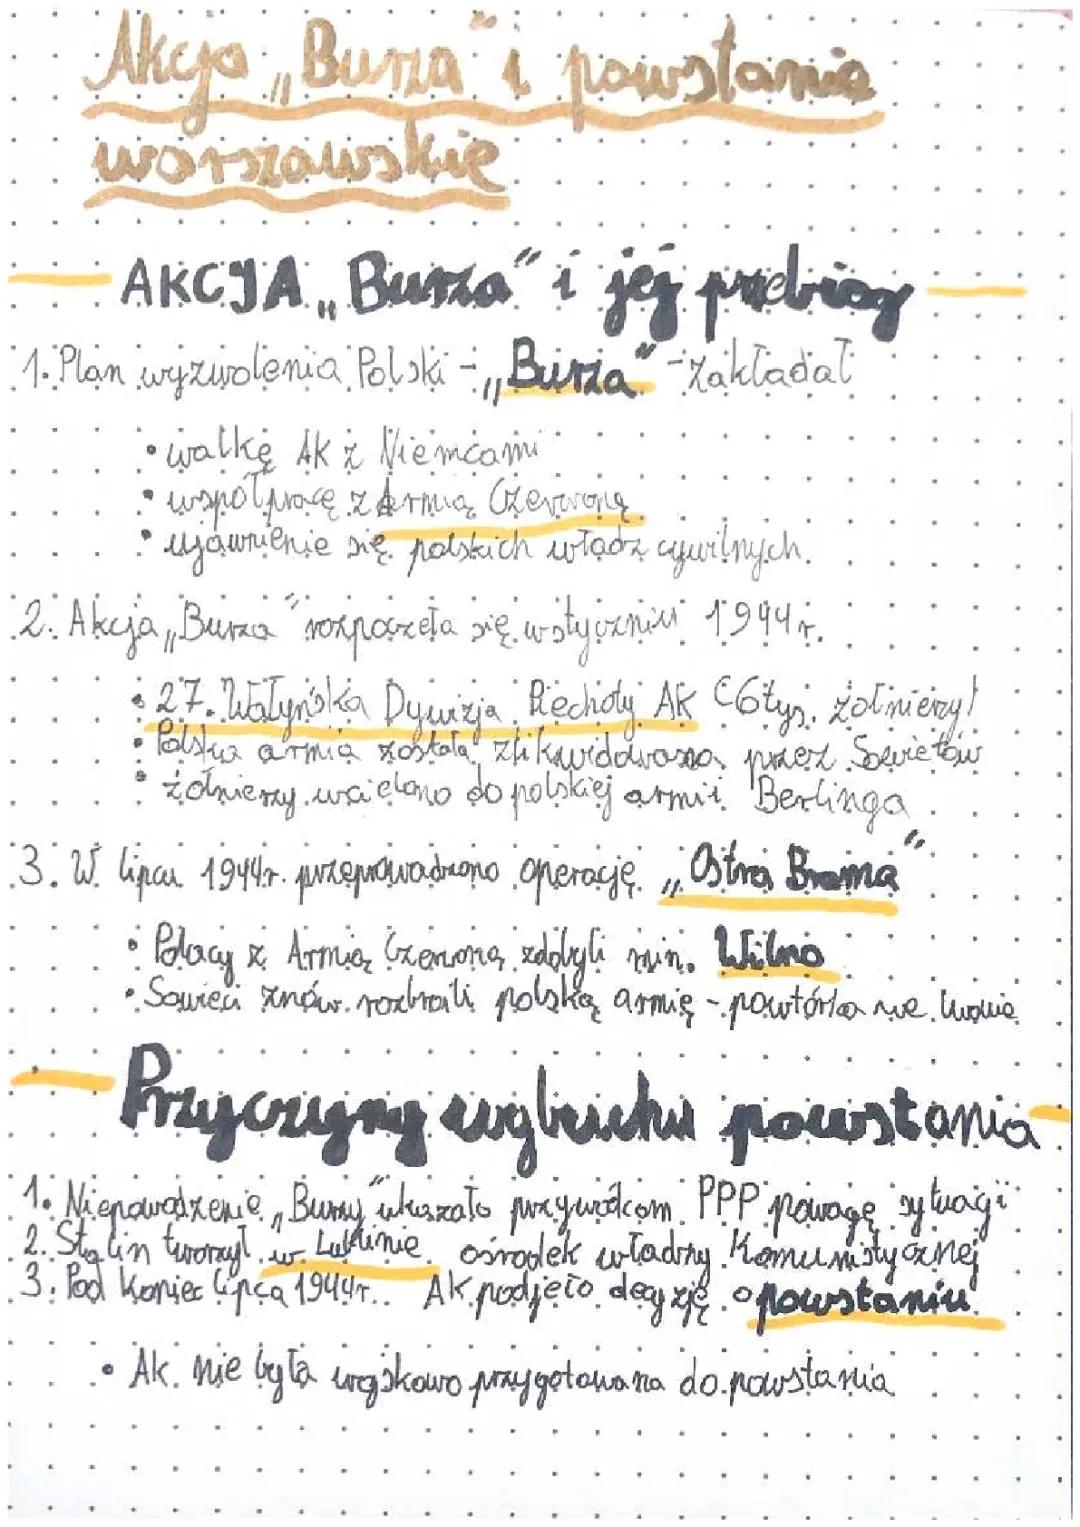 Akcja „Burza" i powstanie
warszawskie
AKCJA „Burza" i jej przebieg
1. Plan wyzwolenia Polski - „Burza" - zakładał
• walkę AK z Niemcami
• współpracę z Armią Czerwoną
• ujawnienie się polskich władz cywilnych.
2. Akcja „Burza" rozpoczęła się w styczniu 1944r.
• 27. Wołyńska Dywizja Piechoty AK (6tys. żołnierzy)
• Polska armia została zlikwidowana przez Sowietów
• żołnierzy wcielono do polskiej armii Berlinga
3. W lipcu 1944r. przeprowadzono operację „Ostra Brama"
• Polacy z Armią Czerwoną zdobyli min. Wilno
• Sowieci znów rozbroili polską armię - powtórka we Lwowie
Przyczyny wybuchu powstania
1. Niepowodzenie „Burzy" ukazało przywódcom PPP powagę sytuacji
2. Stalin tworzył w Lublinie ośrodek władzy komunistycznej
3. Pod koniec lipca 1944r. AK podjęło decyzję o powstaniu
• AK nie była wojskowo przygotowana do powstania